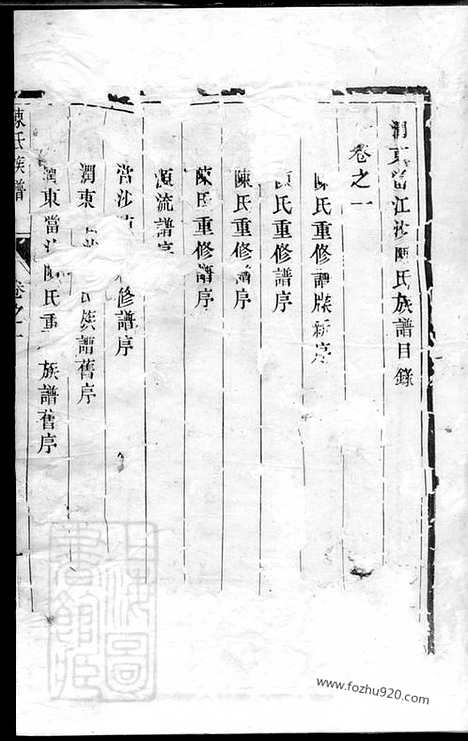 潤東當江沙陳氏族譜目錄
卷之一
陳氏重修譜牒新序
陳氏重修譜序
陳氏重修譜序
陳氏重修譜序
源流譜序
當沙 修譜序
潤東 氏族譜舊序
潤東當沙陳氏重 族譜舊序
陳氏族譜
卷之一
上海圖書館藏
www.fozhu920.com